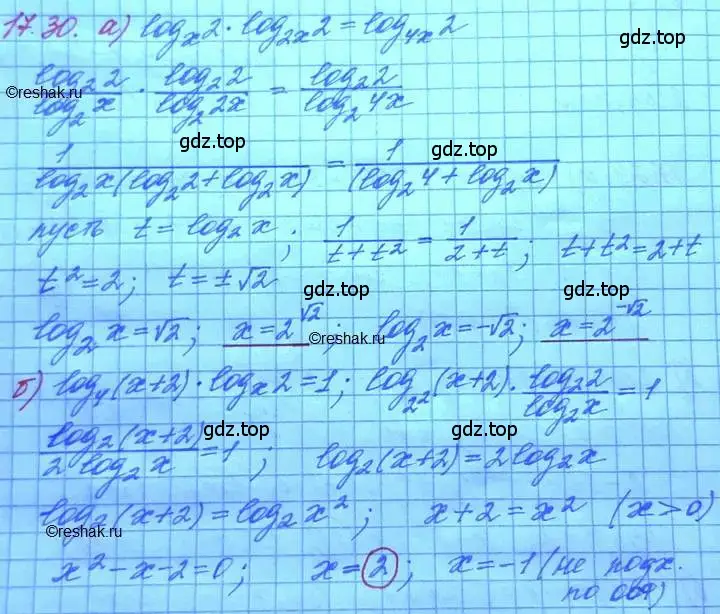 17.30. а) log_x 2 · log_{2x} 2 = log_{4x} 2
log₂2/log₂x · log₂2/log₂2x = log₂2/log₂4x
©reshak.ru
gdz.top gdz.top
1/(log₂x(log₂2+log₂x)) = 1/((log₂4+log₂x))
пусть t = log₂x; 1/(t+t²) = 1/(2+t); t+t² = 2+t
t² = 2; t = ±√2
gdz.top gdz.top
log₂x = √2; x = 2^{√2}; log₂x = -√2; x = 2^{-√2}
©reshak.ru
б) log₄(x+2) · log_x 2 = 1; log_{2²}(x+2) · log₂2/log₂x = 1
gdz.top gdz.top
log₂(x+2)/(2log₂x) = 1; log₂(x+2) = 2log₂x
log₂(x+2) = log₂x²; x+2 = x² (x>0)
©reshak.ru
x²-x-2=0; x = 2; x = -1 (не подх.
по одз)
gdz.top